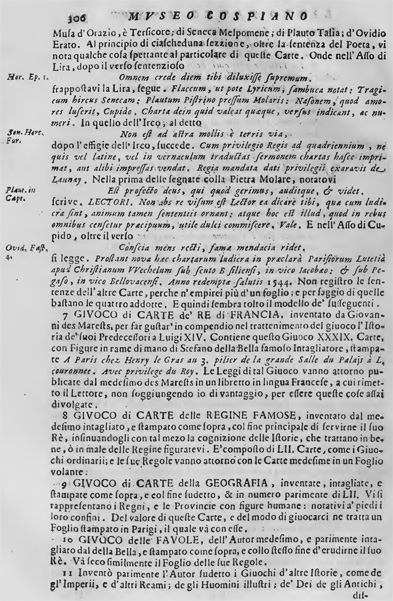 306 MVSEO COSPIANO
Musa d'Orazio, è Tersicore; di Seneca Melpomene; di Plauto Talia; d'Ovidio
Erato. Al principio di ciascheduna sezzione, oltre la sentenza del Poeta, vi
nota qualche cosa spettante al particolare di queste Carte. Onde nell'Asso di
Lira, dopo il verso sentenzioso
Hor. Ep. 1. Omnem crede diem tibi diluxisse supremum.
frappostavi la Lira, segue. Flaccum, ut pote Lyricum, sambuca notat: Tragi-
cum hircus Senecam; Plautum Pistrino pressum Molaris: Nasonem, quod amo-
res luserit, Cupido. Charta dein quid valeat quæque, versus indicant, ac nu-
meri. In quello dell'Irco, al detto
Sen. Herc. Fur. Non est ad astra mollis è terris via,
dopo l'effigie dell'Irco, succede. Cum privilegio Regis ad quadriennium, ne
quis vel latine, vel in vernaculum traductas sermonem chartas hasce impri-
mat, aut alibi impressas vendat. Regia mandata dati privilegii exaravit de
Launay. Nella prima delle segnate colla Pietra Molare, notatovi
Plaut. in Capt. Est profecto deus, qui quod gerimus, auditque, & videt.
scrive. LECTORI. Non abs re visum est Lector ea dicare tibi, qua cum ludi-
cra sint, animum tamen sententiis ornant: atque hoc est illud, quod in rebus
omnibus censetur præcipuum, utile dulci commiscere. Vale. E nell'Asso di Cu-
pido, oltre il verso
Ovid. Fast. 4. Conscia mens recti, fama mendacia ridet,
si legge. Prostant nova hæc chartarum ludicra in præclarâ Parisiorum Lutetiâ
apud Christianum Wechelum sub scuto Basiliensi, in vico Iacobæo: & sub Pe-
gaso, in vico Bellovacensi. Anno redemptæ salutis 1544. Non registro le sen-
tenze dell'altre Carte, perche n'empirei più d'un foglio; e per saggio di quelle
bastano le quattro addotte. E quindi sembra tolto il modello de' susseguenti.
7 GIVOCO di CARTE de' RE di FRANCIA, inventato da Giovan-
ni des Marests, per far gustar' in compendio nel trattenimento del giuoco l'Isto-
ria de' suoi Predecessori a Luigi XIV. Contiene questo Giuoco XXXIX. Carte,
con Figure in rame di mano di Stefano della Bella famoso Intagliatore, stampa-
te A Paris chez Henry le Gras au 3. pilier de la grande Salle du Palais à L,
couronnée. Avec privilege du Roy. Le Leggi di tal Giuoco vanno attorno pu-
blicate dal medesimo des Marests in un libretto in lingua Francese, a cui rimet-
to il Lettore, non soggiungendo io di vantaggio, per essere queste cose assai
divolgate.
8 GIVOCO di CARTE delle REGINE FAMOSE, inventato dal me-
desimo intagliato, e stampato come sopra, col fine principale di servirne il suo
Rè, insinuandogli con tal mezo la cognizione delle Istorie, che trattano in be-
ne, ò in male delle Regine figuratevi. E' composto di LII. Carte, come i Giuo-
chi ordinarii; e le sue Regole vanno attorno con le Carte medesime in un Foglio
volante.
9 GIVOCO di CARTE della GEOGRAFIA, inventate, intagliate, e
stampate come sopra, e col fine sudetto, & in numero parimente di LII. Vi si
rappresentano i Regni, e le Provincie con figure humane: notativi a' piedi i
loro confini. Del valore di queste Carte, e del modo di giuocarci ne tratta un
Foglio stampato in Parigi, il quale và con esse.
10 GIVOCO delle FAVOLE, dell'Autor medesimo, e parimente inta-
gliato dal della Bella, e stampato come sopra, e collo stesso fine d'erudirne il suo
Rè. Và seco similmente il Foglio delle sue Regole.
11 Inventò parimente l'Autor sudetto i Giuochi d'altre Istorie, come de
gl'Imperii, e d'altri Reami; de gli Huomini illustri; de' Dei de gli Antichi,
dif-